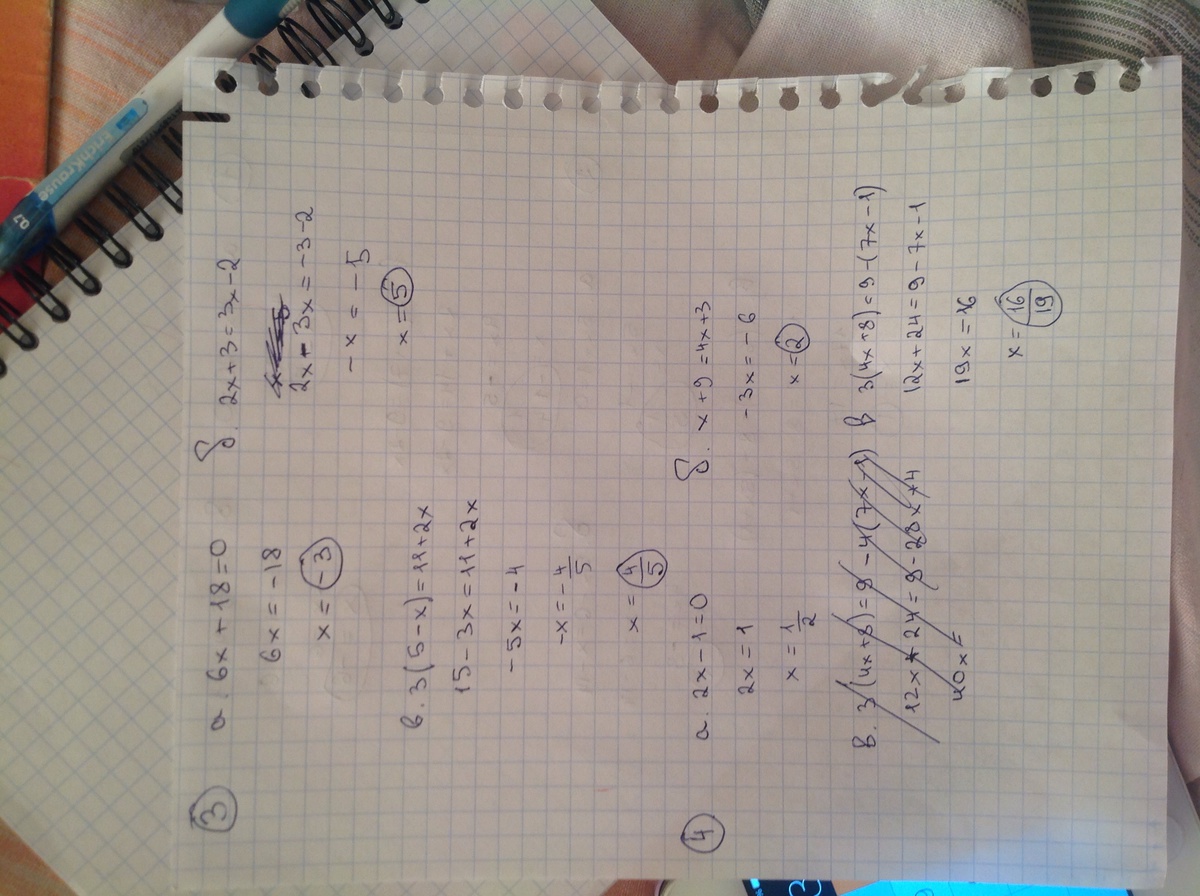 3
а. 6x + 18 = 0
6x = -18
x = -3
б. 2x + 3 = 3x - 2
2x - 3x = -3 - 2
-x = -5
x = 5
в. 3(5 - x) = 11 + 2x
15 - 3x = 11 + 2x
-5x = -4
-x = -4/5
x = 4/5
4
а. 2x - 1 = 0
2x = 1
x = 1/2
б. x + 9 = 4x + 3
-3x = -6
x = 2
в. 3(4x + 8) = 9 - 4(7x - 1)
12x + 24 = 9 - 28x + 4
40x =
в 3(4x + 8) = 9 - (7x - 1)
12x + 24 = 9 - 7x - 1
19x = 16
x = 16/19
ErichKrause
0.7
3